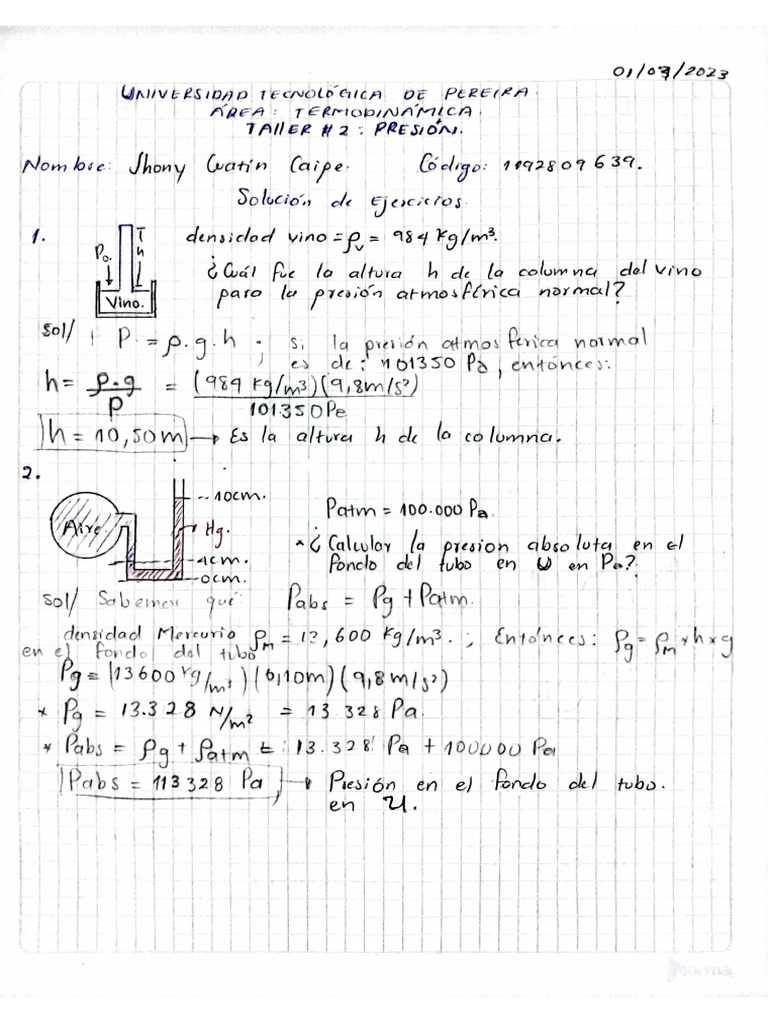 01/03/2023
UNIVERSIDAD TECNOLÓGICA DE PEREIRA.
ÁREA: TERMODINÁMICA.
TAllER #2: PRESIÓN.
Nombre: Jhony Cuatin Caipe. Código: 1192809639.
Solución de Ejercicios.
1. P₀. T h Vino. densidad vino = ρᵥ = 984 kg/m³.
¿Cuál fue la altura h de la columna del vino
para la presión atmosférica normal?
sol/ P = ρ.g.h ; si la presión atmosferica normal
es de: 101350 Pa, entónces:
h = ρ.g / P = (984 kg/m³)(9,8m/s²) / 101.350Pe
h = 10,50m → Es la altura h de la columna.
2.
-- 10cm. Patm = 100.000 Pa.
Aire. Hg. * ¿Calcular la presion absoluta en el
-1cm. fondo del tubo en U en Pa?
-0cm.
sol/ Sabemos que: Pabs = Pg + Patm.
densidad Mercurio ρₘ = 13,600 kg/m³. ; Entónces: Pg = ρₘ × h × g
en el fondo del tubo
Pg = (13600 kg/m³)(0,10m)(9,8m/s²)
* Pg = 13.328 N/m² = 13.328 Pa.
* Pabs = Pg + Patm = 13.328 Pa + 100000 Pa
Pabs = 113328 Pa → Presión en el fondo del tubo.
en U.
Norma